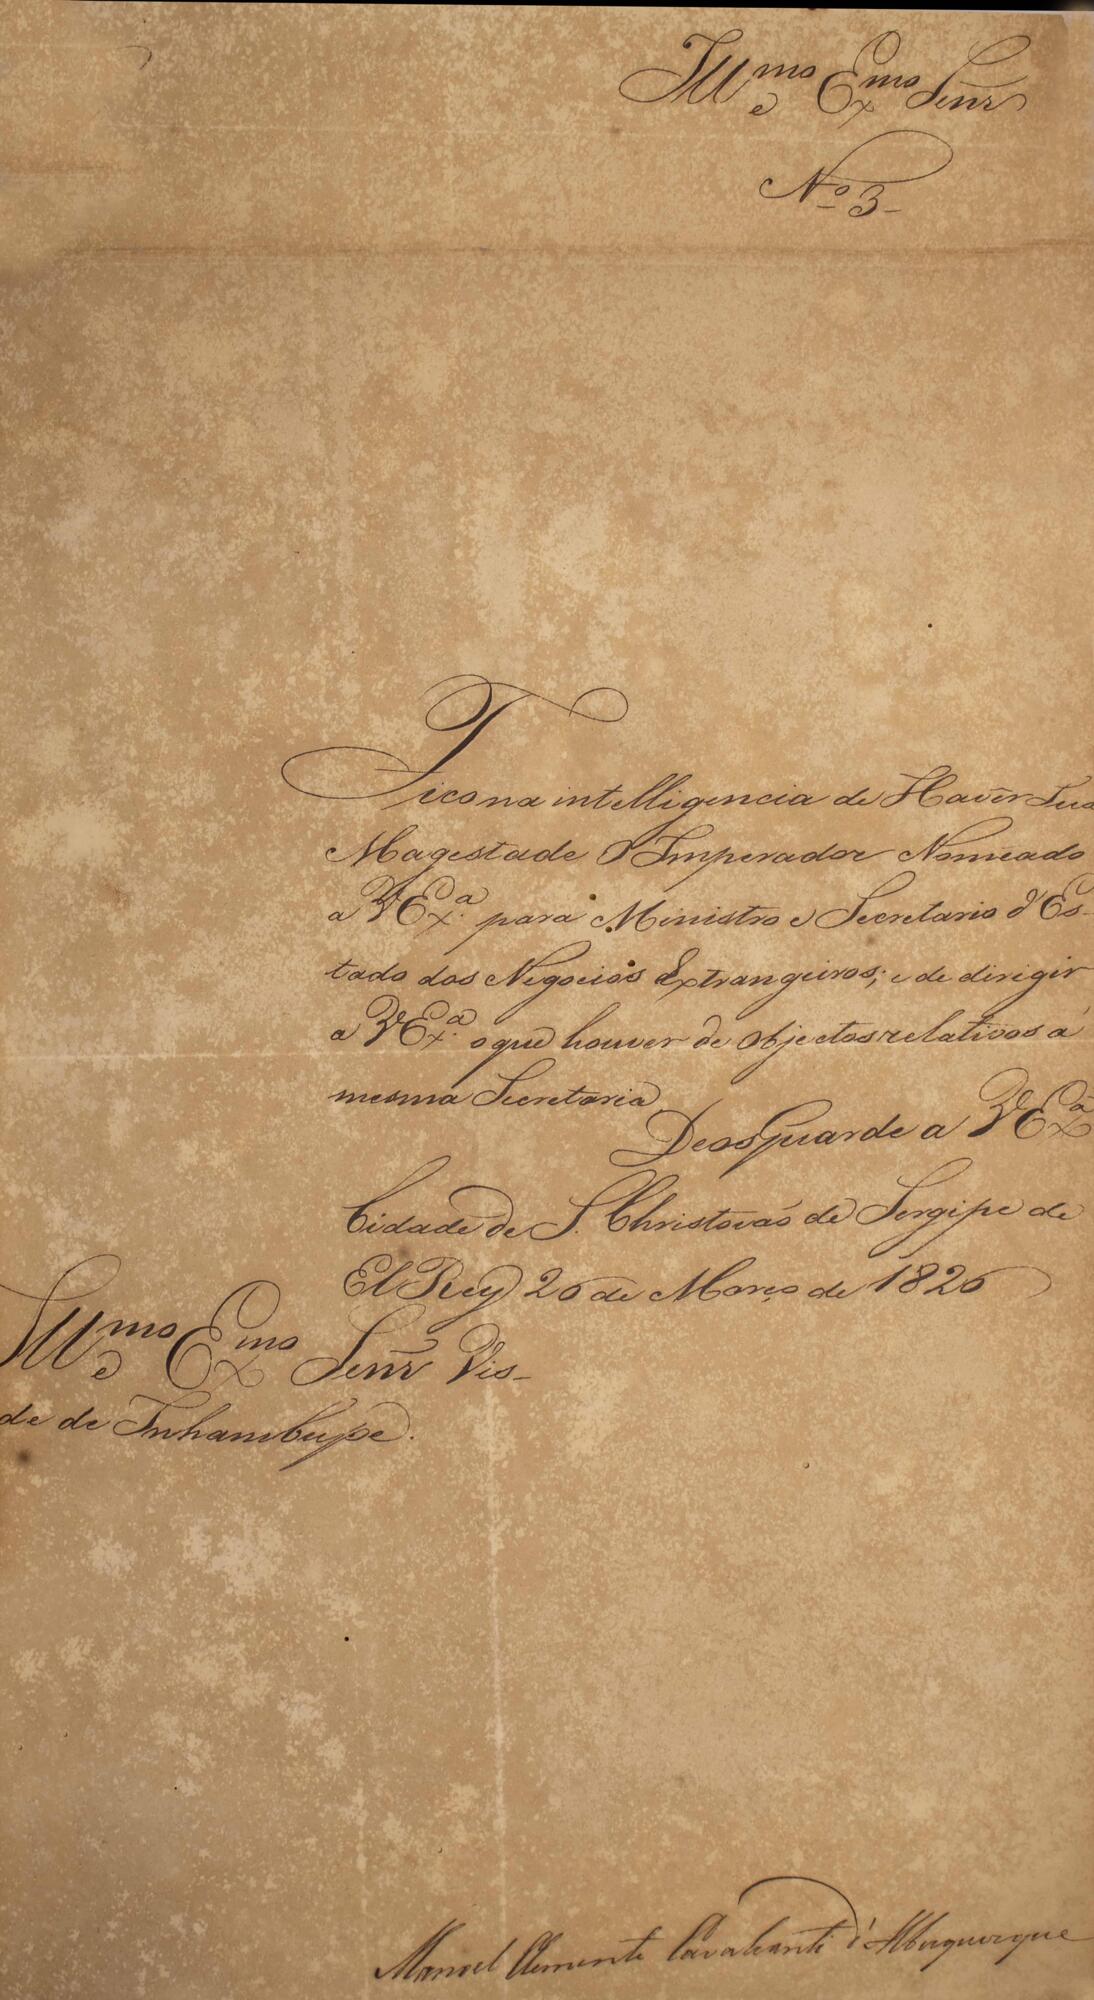 Illmo e Exmo Senr
No 3
Fico na intelligencia de Haver Sua
Magestade O Imperador Nomeado
a VExa. para Ministro e Secretario d'Es-
tado dos Negocios Extrangeiros; e de dirigir
a VExa. o que houver de objectos relativos á
mesma Secretaria
Deos Guarde a VExa
Cidade de S. Christovaõ de Sergipe de
El Rey 26 de Março de 1826
Illmo e Exmo Senr Vis-
de de Inhambupe.
Manoel Clemente Cavalcanti d'Albuquerque